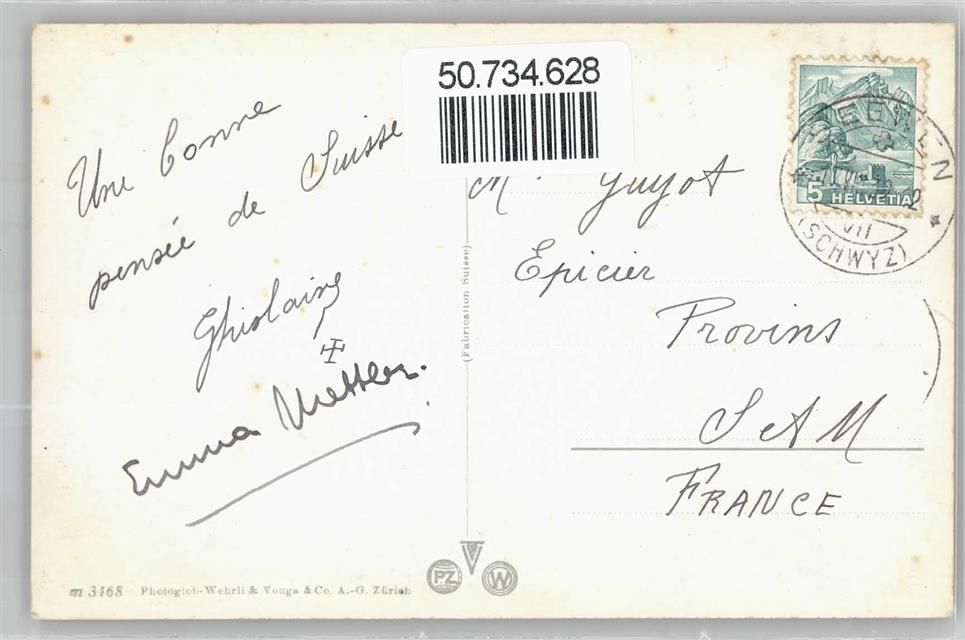 50.734.628
Une bonne
pensée de Suisse
Ghislaine
Emma Mettler.
M. Guyot
Epicier
Provins
S et M
FRANCE
5 HELVETIA
SEEWEN
VII
(SCHWYZ)
(Fabrication Suisse)
m 3468 Photoglob-Wehrli & Vouga & Co. A.-G. Zürich
PZ
W